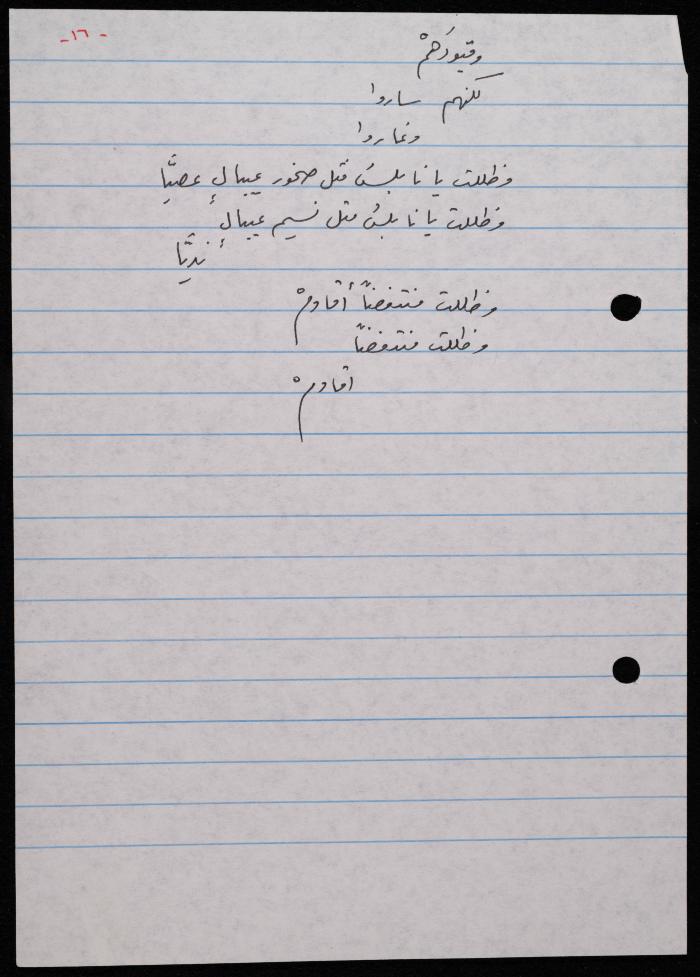 -١٦-
وقيودَهمْ
لكنهم ساروا
وغاروا
وظللت يا نابلسُ مثل صخور عيبالٍ عصيَّا
وظللت يا نابلسُ مثل نسيم عيبالٍ
نديَّا
وظللت منتفضاً أقاومْ
وظللت منتفضاً
أقاومْ